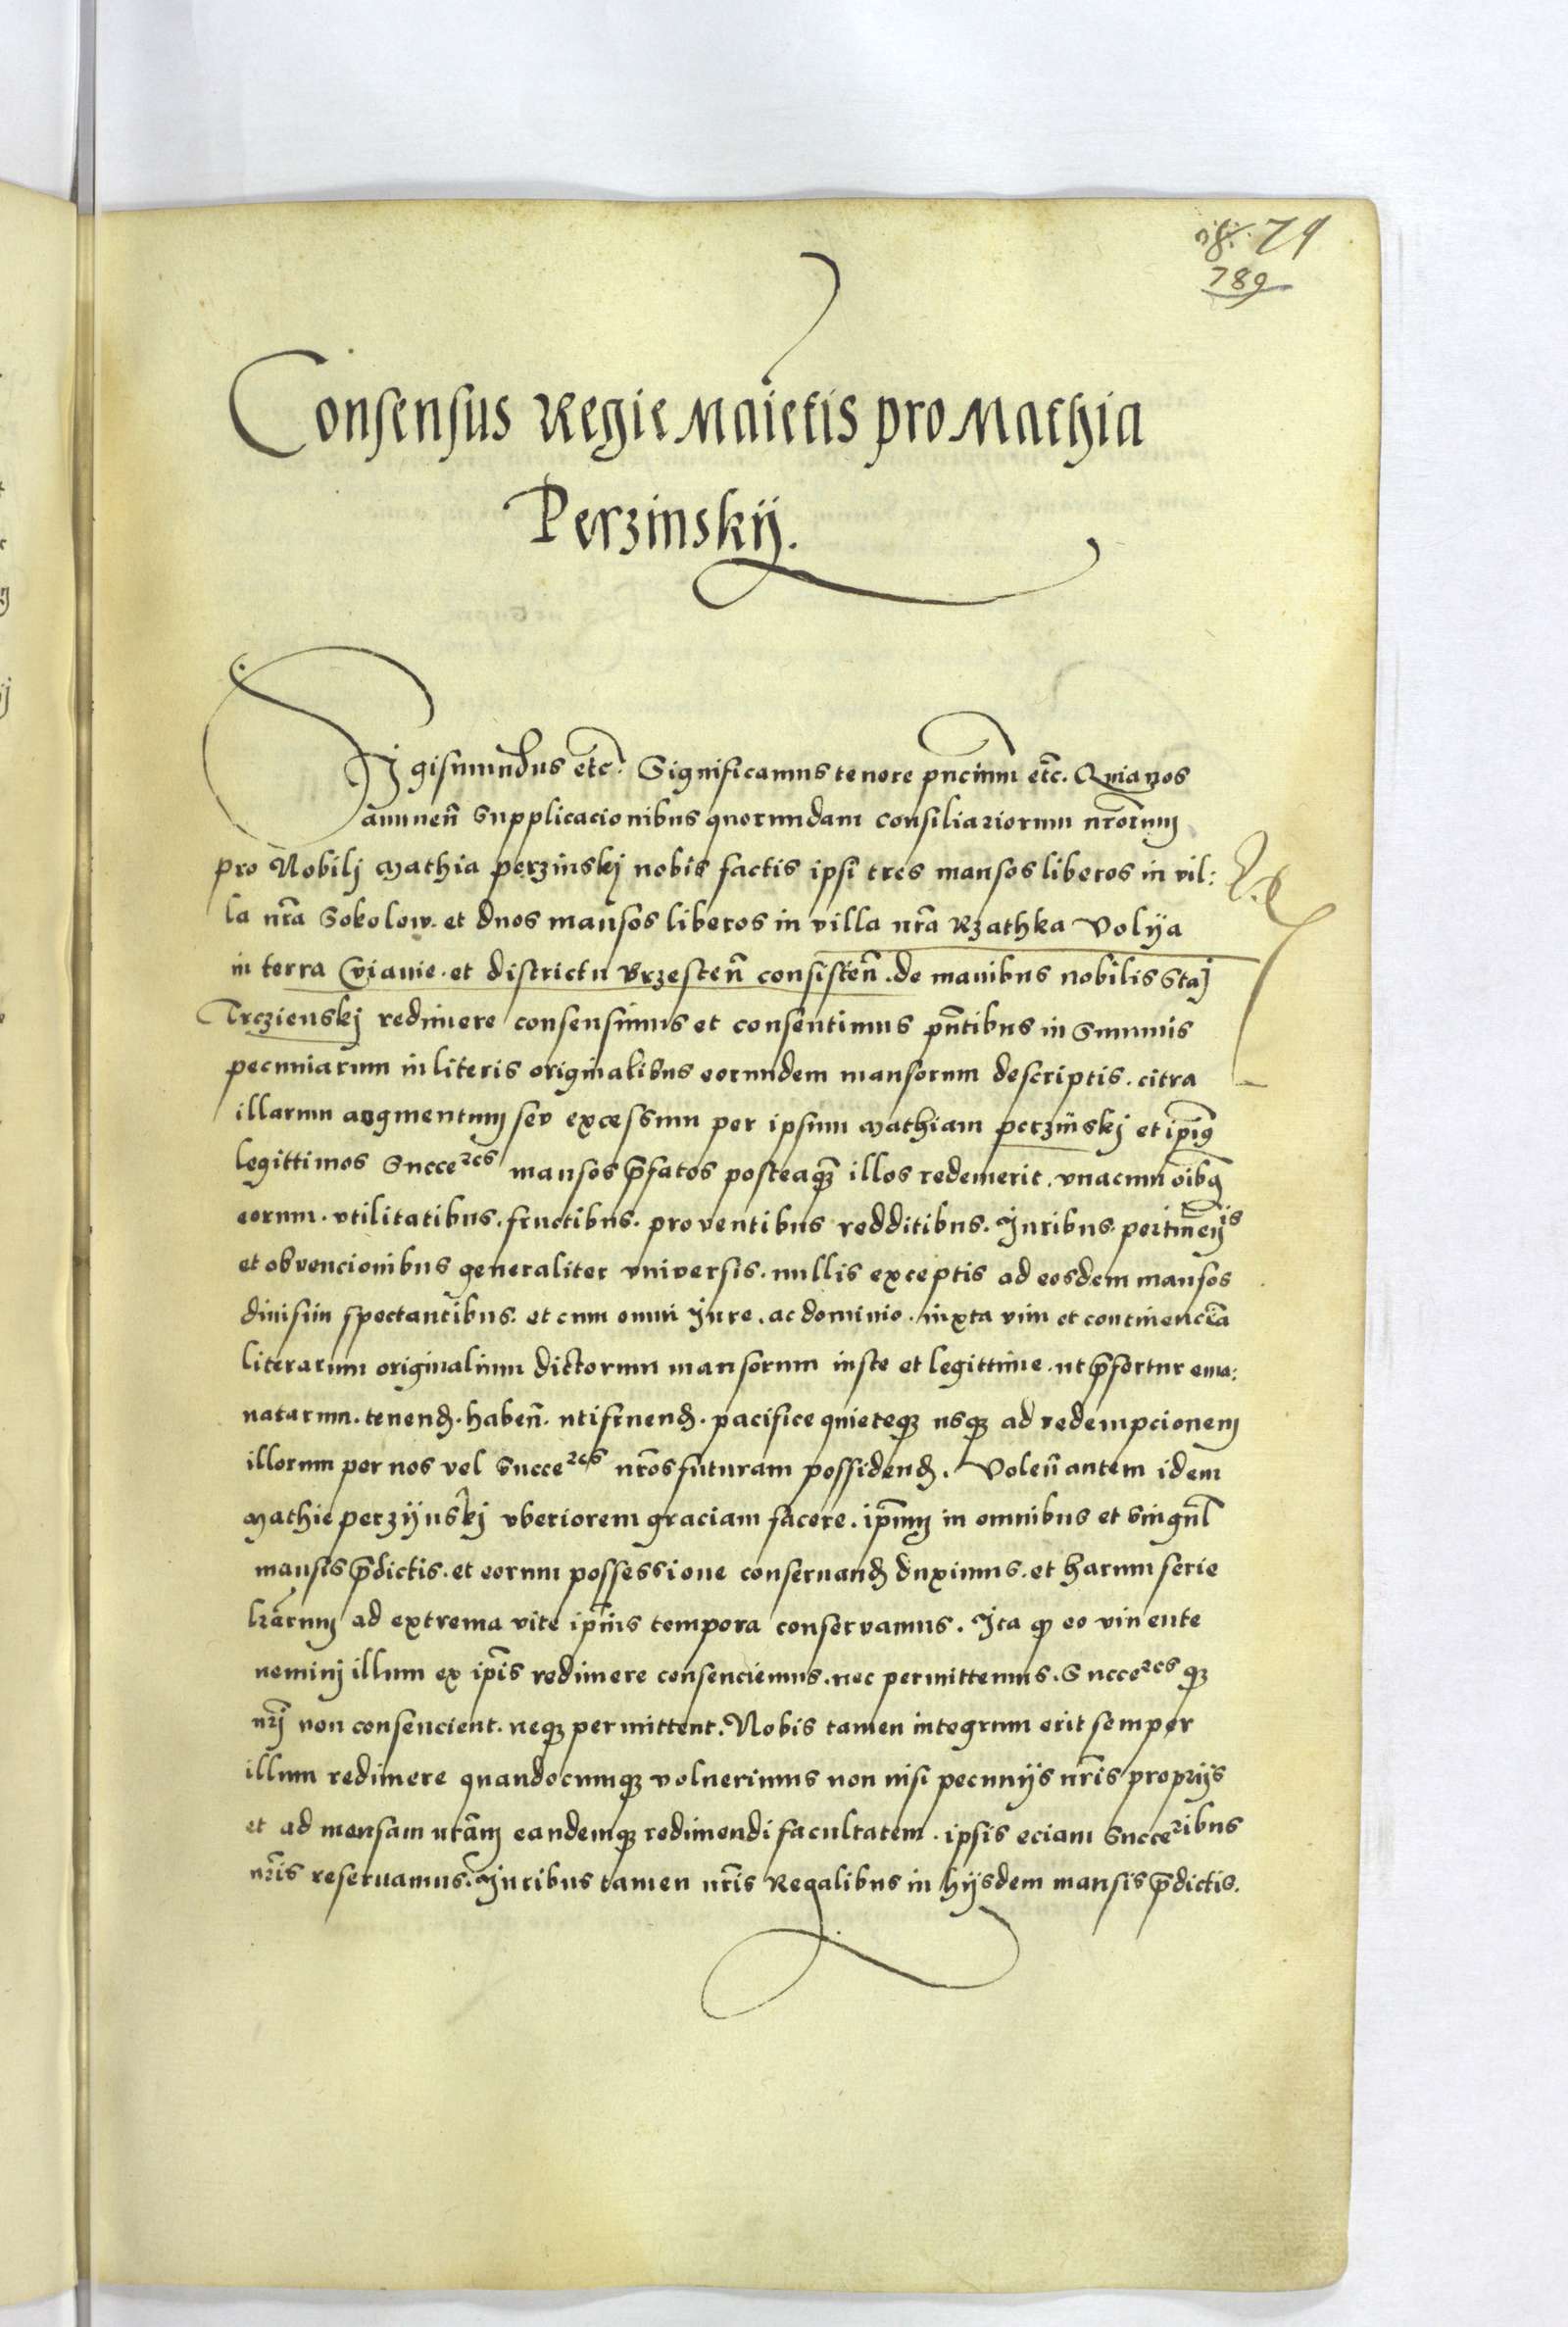 79
789
Consensus Regie Maietis pro Mathia
Perzinskÿ.
Sigismundus etc̃. Significamus tenore pñcium etc̃. Quia nos
annueñ supplicacionibus quorundam consiliariorum nr̃orum
pro Nobilj Mathia perzinskj nobis factis ipsi tres mansos liberos in vil:
la nr̃a Sokolow. et duos mansos liberos in villa nr̃a Rzathka Volÿa
in terra Cuiauie. et districtu Brzesteñ consisteñ. de manibus nobilis Staj
Trczienskj redimere consensimus et consentimus pñtibus in summis
pecuniarum in literis originalibus eorundem mansorum descriptis. citra
illarum augmentum seu excessum per ipsum Mathiam perzinskj et ip̃iꝯ
legittimos Succeres mansos p̃fatos posteaqꝫ illos redemerit. vnacum oĩbꝯ
eorum. vtilitatibus. fructibus. prouentibus redditibus. Juribus. pertineñijs
et obvencionibus generaliter vniversis. nullis exceptis ad eosdem mansos
diuisim spectantibus. et cum omni Jure. ac dominio. iuxta vim et continenciã
literarum originalium dictorum mansorum iuste et legittime. ut p̃fertur ema:
natarum. tenenđ. habeñ. utifruenđ. pacifice quieteqꝫ usqꝫ ad redempcionem
illorum per nos vel Succeres nr̃os futuram possidenđ. Voleñ autem idem
Mathie perzÿnskj vberiorem graciam facere. ip̃um in omnibus et singul̃
mansis p̃dictis. et eorum possessione conseruanđ duximus. et harum serie
lr̃arum ad extrema vite ip̃ius tempora conservamus. Ita qꝫ eo viuente
neminj illum ex ip̃is redimere consenciemus. nec permittemus. Succeres qꝫ
nr̃j non consencient. neqꝫ permittent. Nobis tamen integrum erit semper
illum redimere quandocumqꝫ voluerimus non nisi pecunijs nr̃is proprijs
et ad mensam nr̃am eandemqꝫ redimendi facultatem. ipsis eciam Succeribus
nr̃is reseruamus. Juribus tamen nr̃is Regalibus in hijsdem mansis p̃dictis.